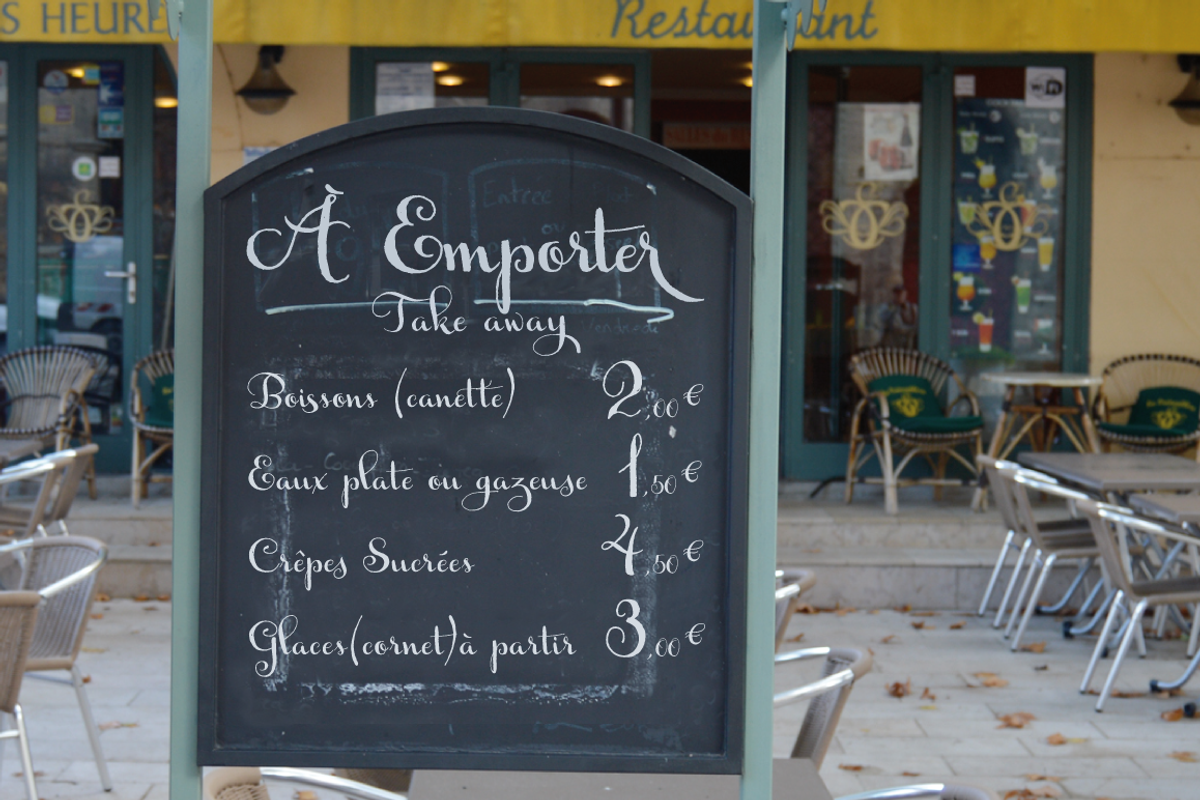 S HEURE
Restaurant
WiFi
À Emporter
Take away
Boissons (canette) 2,00 €
Eaux plate ou gazeuse 1,50 €
Crêpes Sucrées 4,50 €
Glaces(cornet)à partir 3,00 €
Entrée
ou